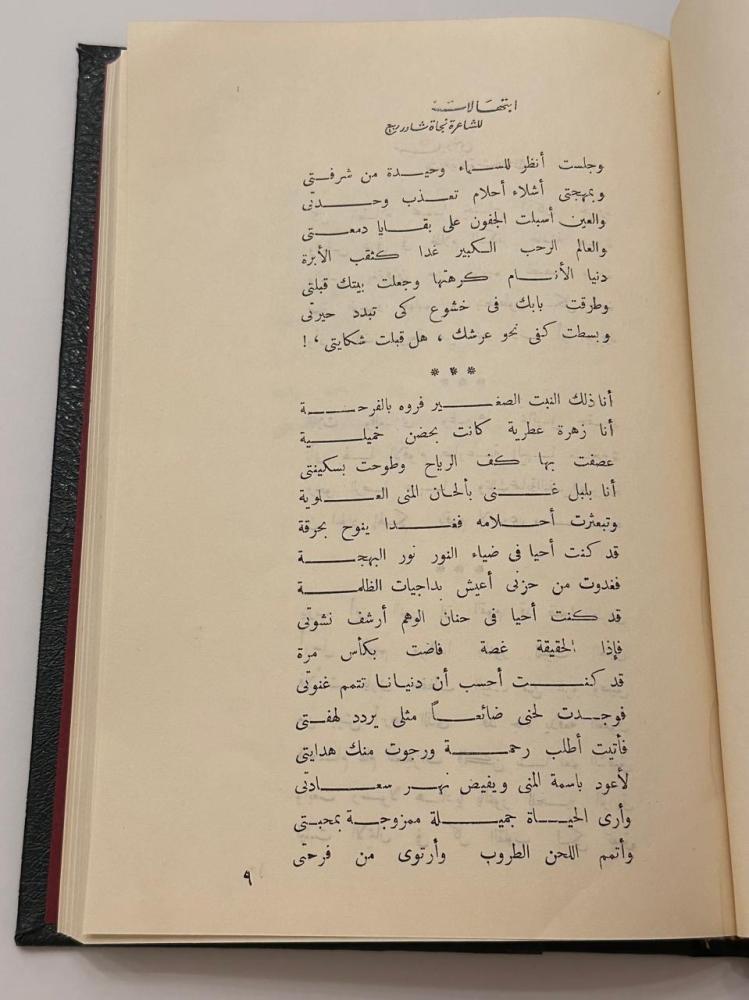 ابتهالات
للشاعرة نجاة شاور ربيع
وجلست أنظر للسماء وحيدة من شرفتى
وبمهجتى أشلاء أحلام تعذب وحدتى
والعين أسبلت الجفون على بقايا دمعتى
والعالم الرحب الكبير غدا كثقب الأبرة
دنيا الأنام كرهتها وجعلت بيتك قبلتى
وطرقت بابك فى خشوع كى تبدد حيرتى
وبسطت كفى نحو عرشك ، هل قبلت شكايتى ، !
* * *
أنا ذلك النبت الصغير فروه بالفرحة
أنا زهرة عطرية كانت بحضن خميلية
عصفت بها كف الرياح وطوحت بسكينتى
أنا بلبل غنى بألحان المنى العلوية
وتبعثرت أحلامه فغدا ينوح بحرقة
قد كنت أحيا فى ضياء النور نور البهجة
فغدوت من حزنى أعيش بداجيات الظلمة
قد كنت أحيا فى حنان الوهم أرشف نشوتى
فإذا الحقيقة غصة فاضت بكأس مرة
قد كنت أحسب أن دنيانا تتمم غنوتى
فوجدت لحنى ضائعاً مثلى يردد لهفتى
فأتيت أطلب رحمة ورجوت منك هدايتى
لأعود باسمة المنى ويفيض نهر سعادتى
وأرى الحياة جميلة ممزوجة بمحبتى
وأتمم اللحن الطروب وأرتوى من فرحتى
٩